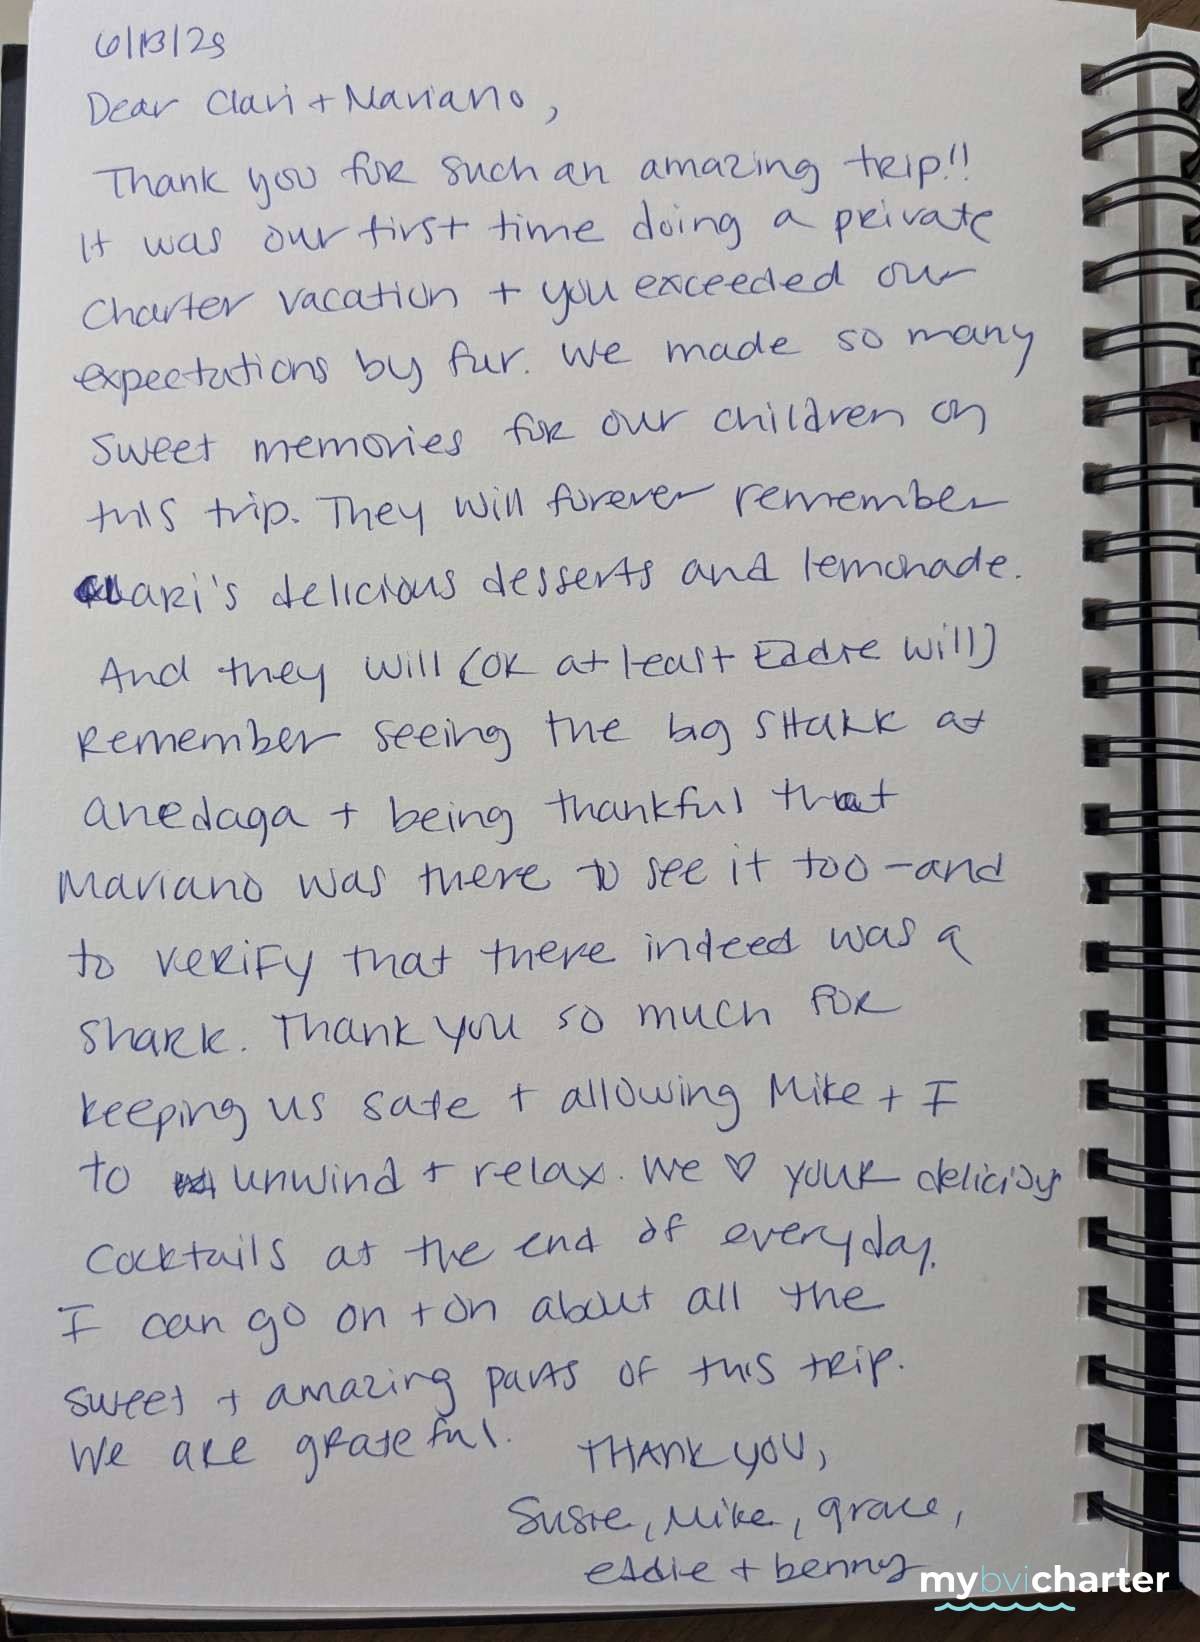 6/13/25
Dear Clari + Mariano,
Thank you for such an amazing trip!!
It was our first time doing a private
charter vacation + you exceeded our
expectations by far. We made so many
sweet memories for our children on
this trip. They will forever remember
Clari's delicious desserts and lemonade.
And they will (or at least Eddie will)
remember seeing the big shark at
anedaga + being thankful that
Mariano was there to see it too - and
to verify that there indeed was a
shark. Thank you so much for
keeping us safe + allowing Mike + I
to unwind + relax. We ♡ your delicious
cocktails at the end of everyday.
I can go on + on about all the
sweet + amazing parts of this trip.
We are grateful.
THANK YOU,
Susie, Mike, grace,
eddie + benny
mybvicharter